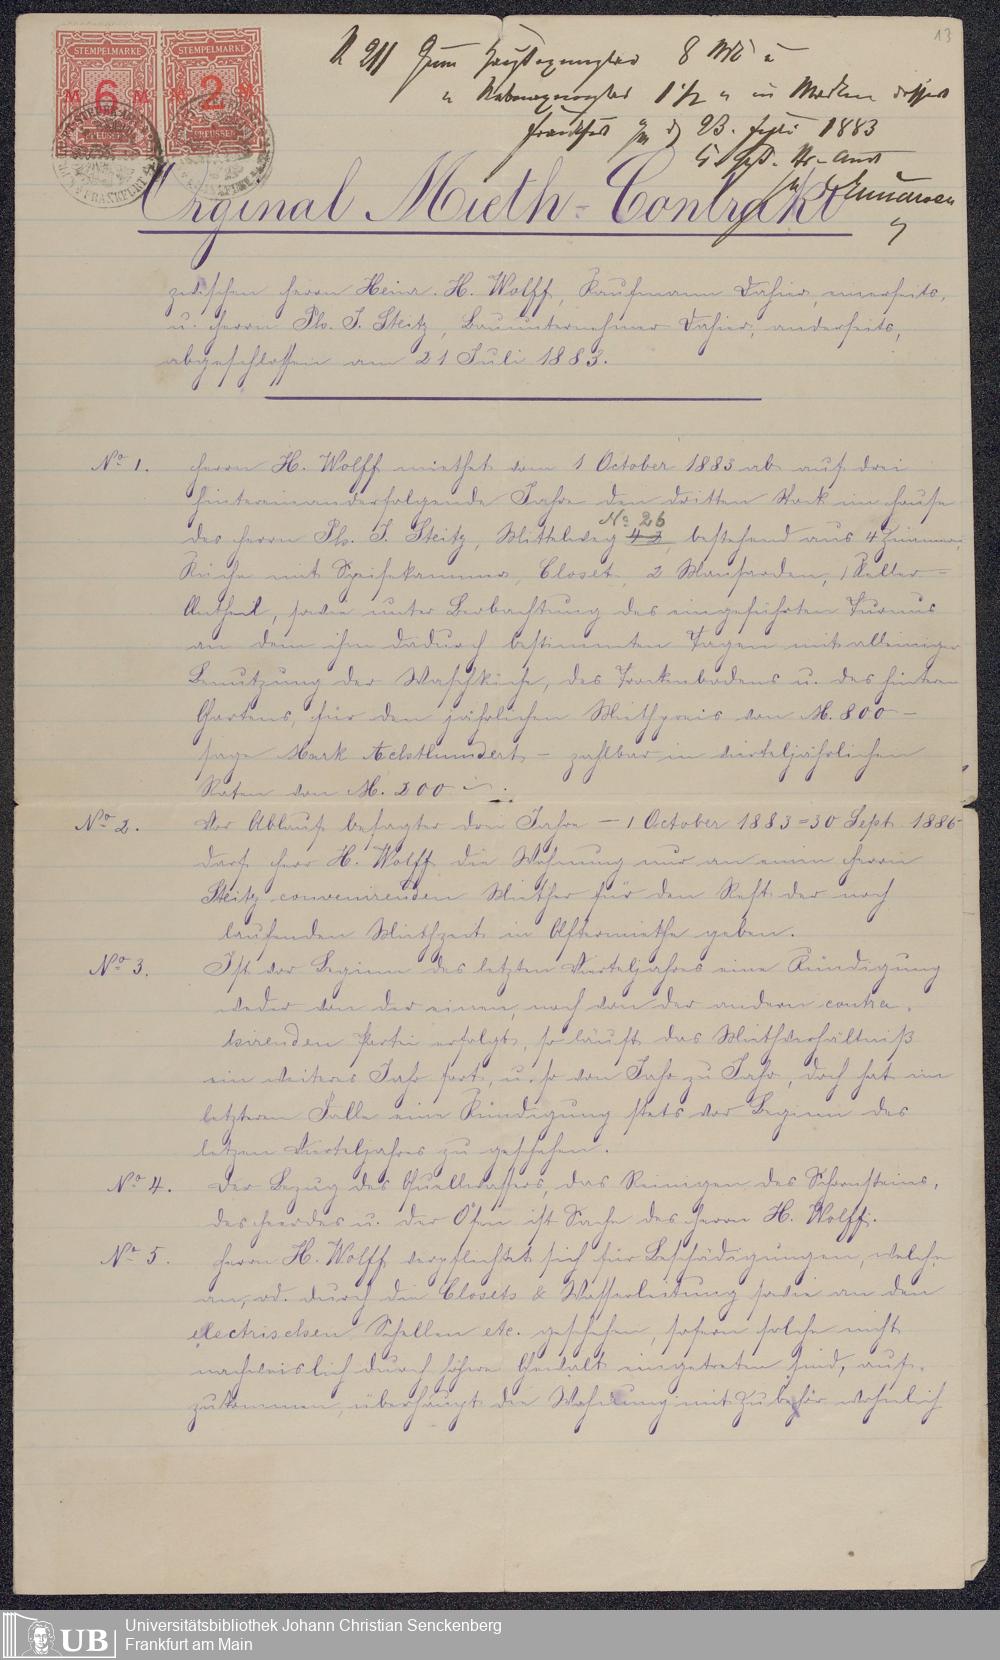 13
STEMPELMARKE STEMPELMARKE
M 6 M M 2 M
PREUSSEN PREUSSEN
FRANKFURT
N 211 Zum Hauptexemplar 8 Mk u
" Nebenexemplar 1 1/2 " in Marken
Frankfurt a/m d 23. Juli 1883
Orginal Mieth-Contrakt
zwischen Herrn Heinr. H. Wolff, Kaufmann dahier, einerseits,
u. Herrn Ph. J. Steitz, Bauunternehmer dahier, anderseits,
abgeschlossen am 21 Juli 1883.
No 1. Herrn H. Wolff miethet vom 1 October 1883 ab auf drei
hintereinanderfolgende Jahre den dritten Stock im Hause
No 26
des Herrn Ph. J. Steitz, Mittelweg 42, bestehend aus 4 Zimmern,
Küche mit Speisekammer, Closet, 2 Mansarden, 1 Keller-
Antheil, sowie unter Beobachtung des eingeführten Turnus
an dem ihm dadurch bestimmten Tagen mit alleiniger
Benutzung der Waschküche, des Trockenbodens u. des hintern
Gartens, für den jährlichen Miethpreis von M. 800 –
sage Mark Achthundert – zahlbar in vierteljährlichen
Raten von M. 200 –.
No 2. Vor Ablauf besagter drei Jahre – 1 October 1883 = 30 Sept 1886 –
darf Herr H. Wolff die Wohnung nur an einen Herrn
Steitz convenirenden Miether für den Rest der noch
laufenden Miethzeit in Aftermiethe geben.
No 3. Ist vor Beginn des letzten Vierteljahres eine Kündigung
weder von der einen, noch von der andern contra-
hirenden Partei erfolgt, so läuft das Miethverhältniß
ein weiteres Jahr fort, u. so von Jahr zu Jahr, doch hat im
letztern Falle eine Kündigung stets vor Beginn des
letzen Vierteljahres zu geschehen.
No 4. Der Bezug des Quellwassers, das Reinigen des Schornsteins,
des Heerdes u. der Öfen ist Sache des Herrn H. Wolff.
No 5. Herrn H. Wolff verpflichtet sich für Beschädigungen, welche
an, od. durch die Closets & Wasserleitung sowie an den
electrischen Schellen etc. geschehen, sofern solche nicht
nachweislich durch höhere Gewalt eingetreten sind, auf-
zukommen, überhaupt die Wohnung mit Zubehör wohnlich
UB
Universitätsbibliothek Johann Christian Senckenberg
Frankfurt am Main